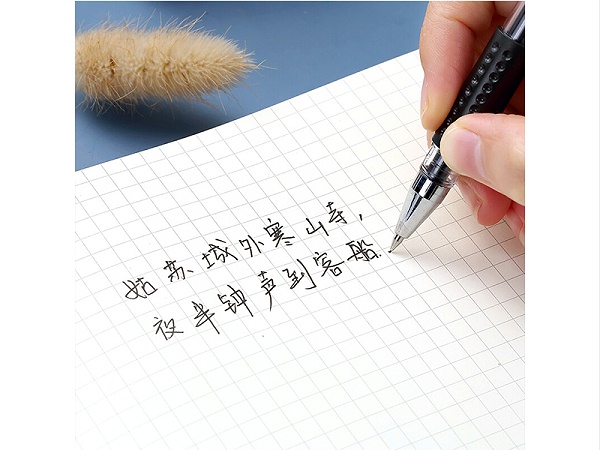 姑苏城外寒山寺，
夜半钟声到客船.